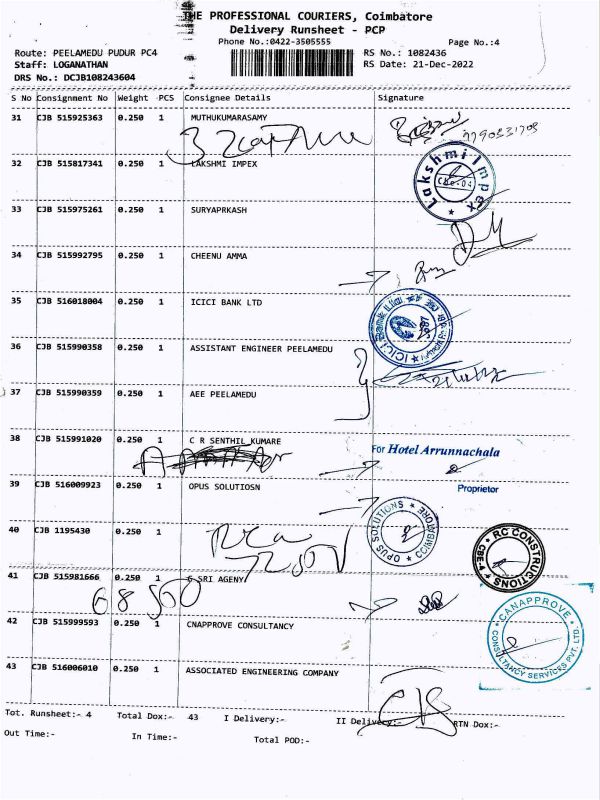 THE PROFESSIONAL COURIERS, Coimbatore
Delivery Runsheet - PCP
Phone No.:0422-3505555
Page No.:4
Route: PEELAMEDU PUDUR PC4
RS No.: 1082436
Staff: LOGANATHAN
RS Date: 21-Dec-2022
DRS No.: DCJB108243604
S No Consignment No Weight PCS Consignee Details Signature
31 CJB 515925363 0.250 1 MUTHUKUMARASAMY
32 CJB 515817341 0.250 1 LAKSHMI IMPEX
Lakshmi Impex
33 CJB 515975261 0.250 1 SURYAPRKASH
34 CJB 515992795 0.250 1 CHEENU AMMA
35 CJB 516018004 0.250 1 ICICI BANK LTD
ICICI Bank Ltd
36 CJB 515990358 0.250 1 ASSISTANT ENGINEER PEELAMEDU
37 CJB 515990359 0.250 1 AEE PEELAMEDU
38 CJB 515991020 0.250 1 C R SENTHIL KUMARE
For Hotel Arrunnachala
Proprietor
39 CJB 516009923 0.250 1 OPUS SOLUTIOSN
OPUS SOLUTIONS COIMBATORE
40 CJB 1195430 0.250 1
RC CONSTRUCTIONS
CBE-4
41 CJB 515981666 0.250 1 G SRI AGENY
68500
42 CJB 515999593 0.250 1 CNAPPROVE CONSULTANCY
CANAPPROVE
CONSULTANCY SERVICES PVT. LTD.
43 CJB 516006010 0.250 1 ASSOCIATED ENGINEERING COMPANY
Tot. Runsheet:- 4 Total Dox:- 43 I Delivery:- II Delivery:- RTN Dox:-
Out Time:- In Time:- Total POD:-